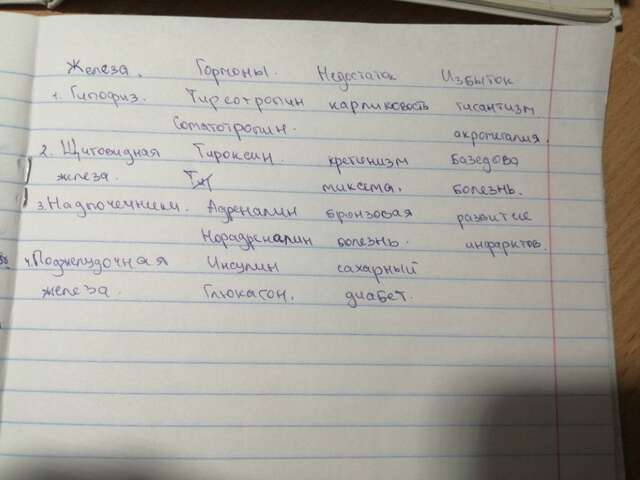 Железа. Гормоны. Недостаток Избыток
1. Гипофиз. Тиреотропин карликовость гигантизм
Соматотропин. акромегалия.
2. Щитовидная Тироксин. кретинизм Базедова
железа. миксема. болезнь.
3. Надпочечники. Адреналин бронзовая развитие
Норадреналин болезнь. инфарктов.
4. Поджелудочная Инсулин сахарный
железа. Глюкагон. диабет.